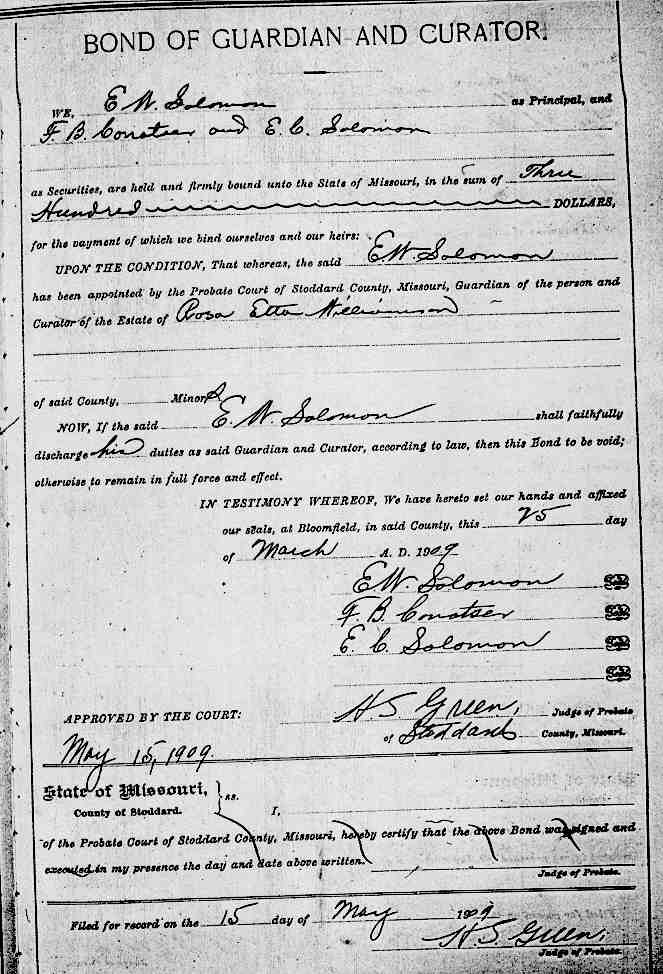 BOND OF GUARDIAN AND CURATOR.
WE, E W. Solomon as Principal, and
F. B. Conatser and E. C. Solomon
as Securities, are held and firmly bound unto the State of Missouri, in the sum of Three
Hundred DOLLARS,
for the payment of which we bind ourselves and our heirs:
UPON THE CONDITION, That whereas, the said E.W. Solomon
has been appointed by the Probate Court of Stoddard County, Missouri, Guardian of the person and
Curator of the Estate of Rosa Etta Williamson
of said County, Minor
NOW, If the said E. W. Solomon shall faithfully
discharge his duties as said Guardian and Curator, according to law, then this Bond to be void;
otherwise to remain in full force and effect.
IN TESTIMONY WHEREOF, We have hereto set our hands and affixed
our seals, at Bloomfield, in said County, this 25 day
of March A. D. 1909
E.W. Solomon
F. B. Conatser
E. C. Solomon
APPROVED BY THE COURT: H. S. Green, Judge of Probate
of Stoddard County, Missouri.
May 15, 1909.
State of Missouri,
County of Stoddard. } ss. I,
of the Probate Court of Stoddard County, Missouri, hereby certify that the above Bond was signed and
executed in my presence the day and date above written.
Judge of Probate.
Filed for record on the 15 day of May 1909
H. S. Green,
Judge of Probate.